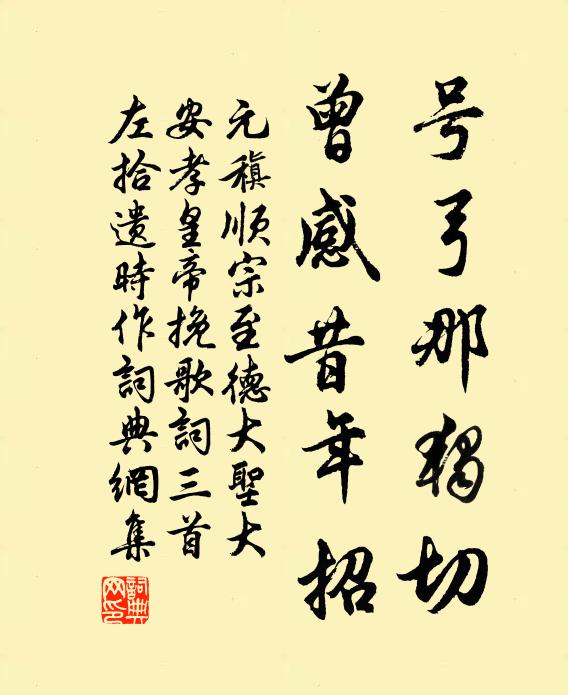 号弓那独切
曾感昔年招
元稹顺宗至德大聖大
安孝皇帝挽歌詞三首
左拾遗時作詞典網集
詞典网印